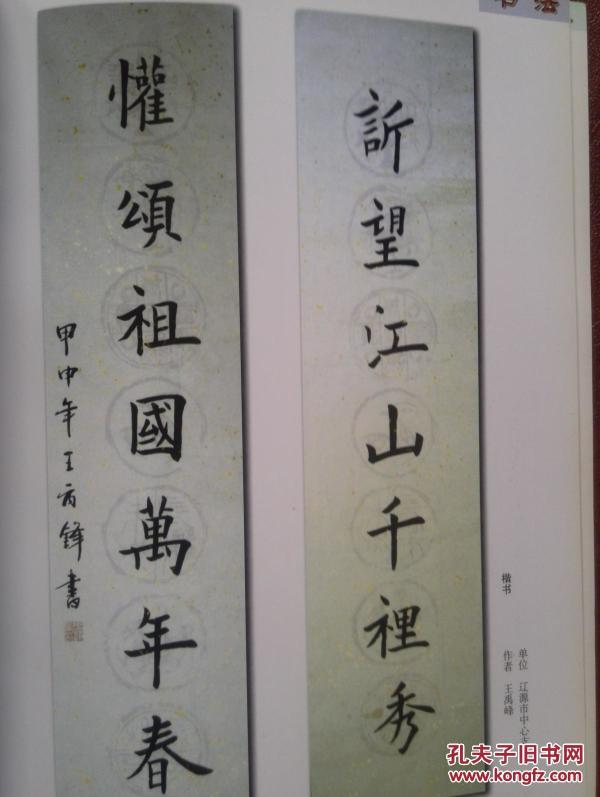 书法
訢望江山千裡秀
懽頌祖國萬年春
甲申年王
鋒書
楷书
单位 辽源市中心支
作者 王禹峰
孔夫子旧书网
www.kongfz.com